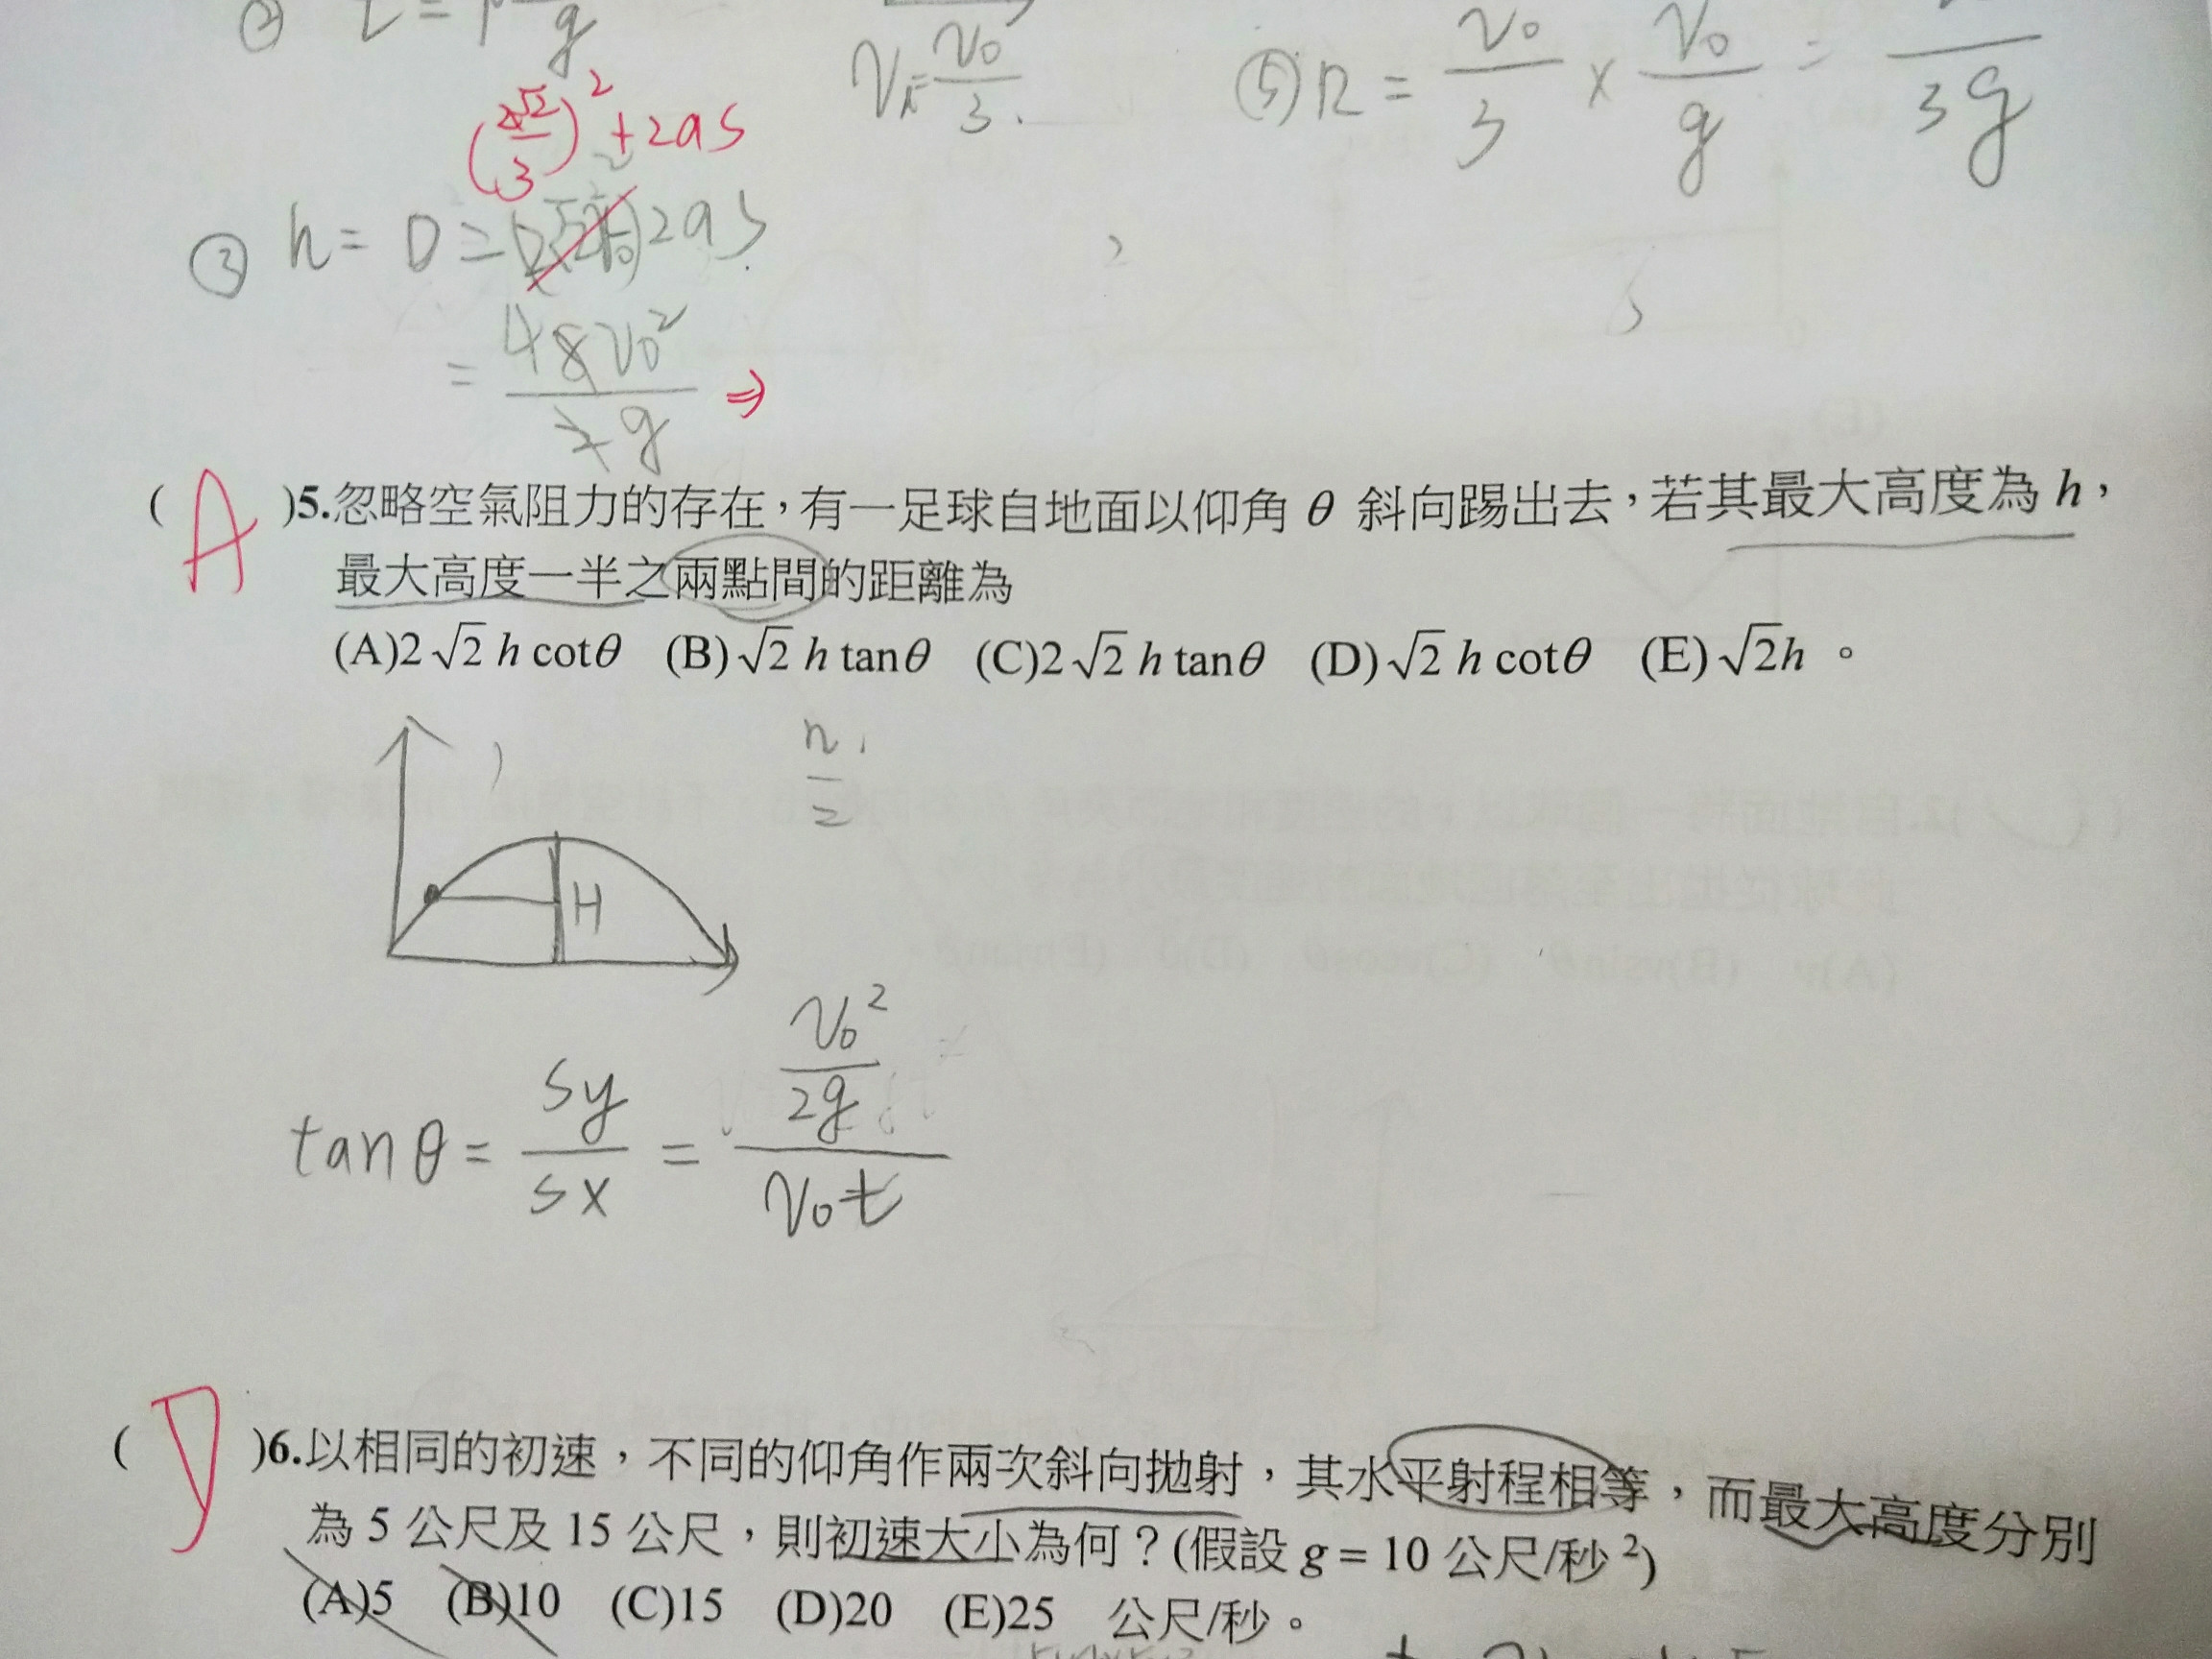 ② t =
g
Vx = v0/3.
⑤ R = v0/3 × v0/g = /3g
(2√2/3)² + 2as
③ h = 0 = 2as
= 48v0²/2g ⇒
( A )5.忽略空氣阻力的存在，有一足球自地面以仰角 θ 斜向踢出去，若其最大高度為 h，
最大高度一半之兩點間的距離為
(A)2√2 h cotθ (B)√2 h tanθ (C)2√2 h tanθ (D)√2 h cotθ (E)√2h 。
H
tanθ = sy/sx = (v0²/2g)/(v0t)
( D )6.以相同的初速，不同的仰角作兩次斜向拋射，其水平射程相等，而最大高度分別
為 5 公尺及 15 公尺，則初速大小為何？(假設 g = 10 公尺/秒²)
(A)5 (B)10 (C)15 (D)20 (E)25 公尺/秒。